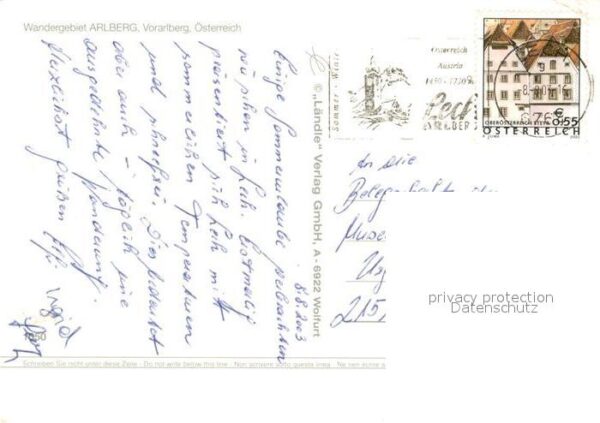 Wandergebiet ARLBERG, Vorarlberg, Österreich
8.8.2003
Einige Sommerurlaube verbrachten
wir schon in Lech. Erstmalig
präsentiert sich Lech mit
sommerlichen Temperaturen
und schneefrei. Dies bedeutet
aber auch – täglich eine
ausgedehnte Wanderung.
Herzlichst grüßen
Ingrid
© „Ländle“ Verlag GmbH, A - 6922 Wolfurt
Sommer - Winter
Österreich
Austria
1450 - 1720
Lech
ARLBERG
OBERÖSTERREICH STEYR
€ 0,55
ÖSTERREICH
An die
Muse
215
privacy protection
Datenschutz
Schreiben Sie nicht unter diese Zeile - Do not write below this line - Non scrivere sotto questa linea - Ne rien écrire